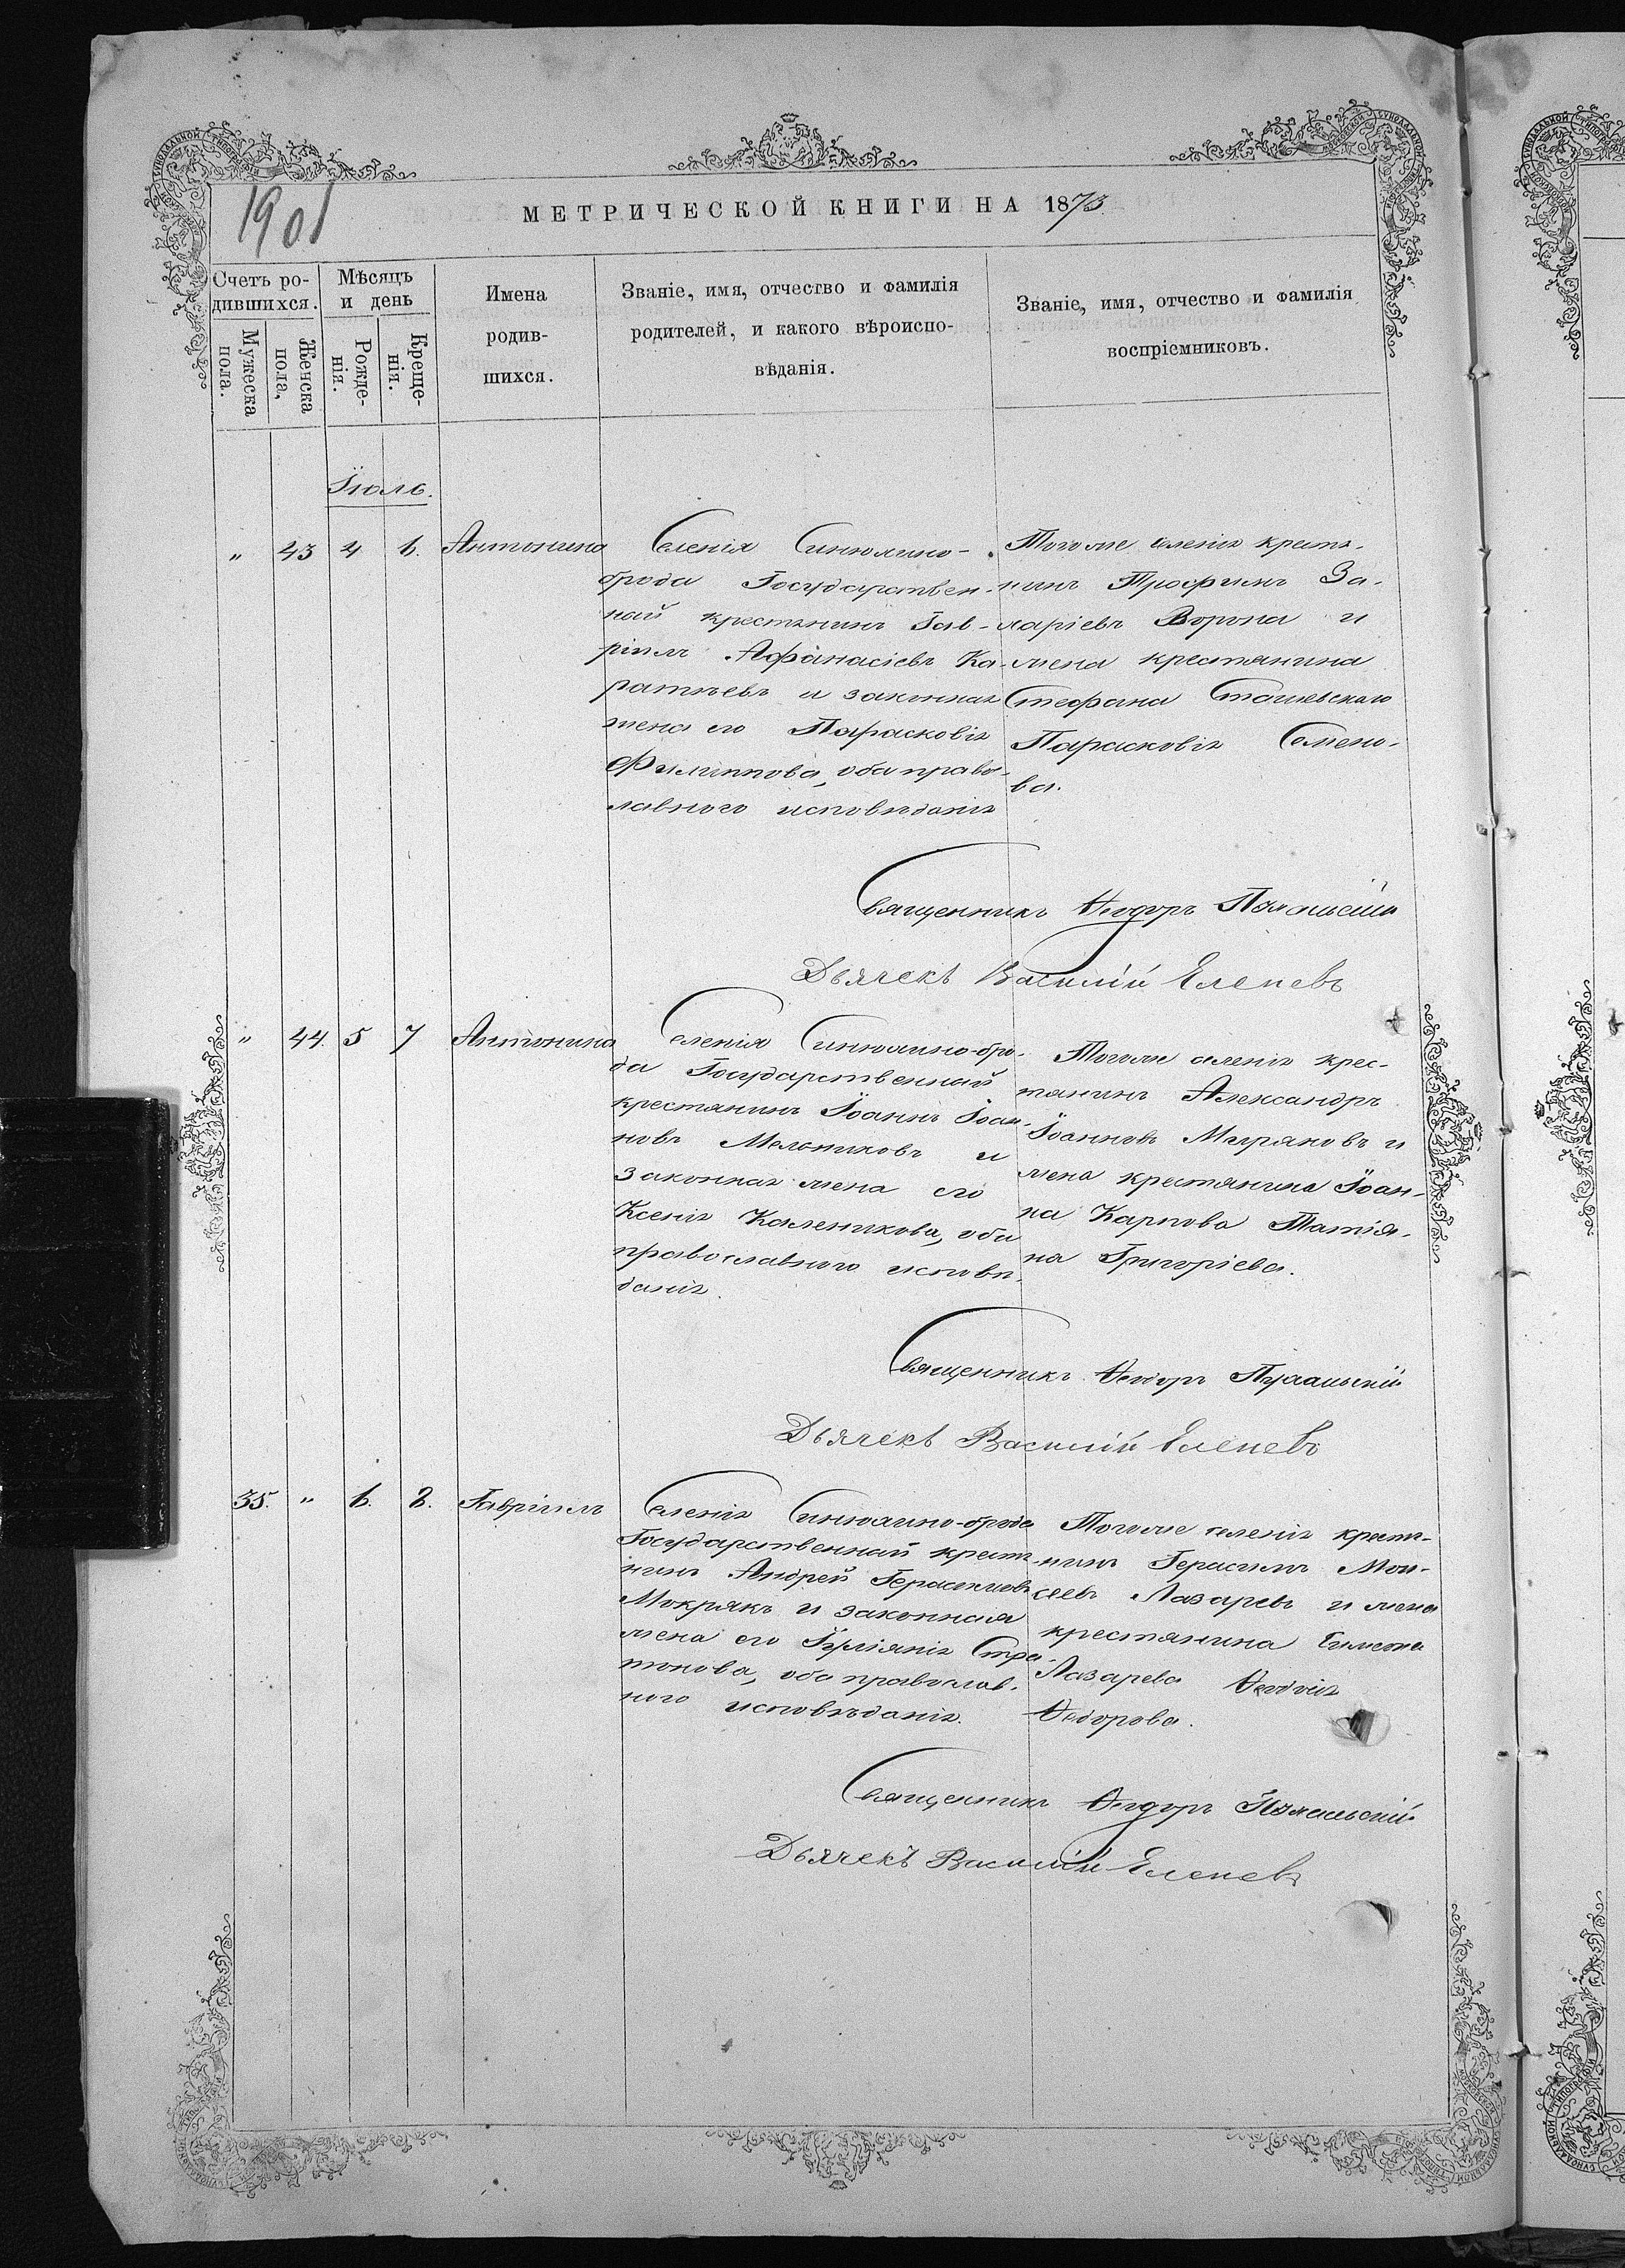 190
МЕТРИЧЕСКОЙ КНИГИ НА 1873
Счетъ ро-
дившихся.
Мужеска
пола.
Женска
пола,
Мѣсяцъ
и день
Рожде-
нія.
Креще-
нія.
Имена
родив-
шихся.
Званіе, имя, отчество и фамилія
родителей, и какого вѣроиспо-
вѣданія.
Званіе, имя, отчество и фамилія
воспріемниковъ.
Іюль.
„ 43 4 6. Антонина
Селенія Синюхино-
брода Государствен-
ный крестянинъ Гав-
ріилъ Афанасіевъ Ка-
ратѣевъ и законная
жена его Парасковія
Филиппова, оба право-
лавного исповѣданія
Тогоже селенія крестя-
нинъ Трофимъ За-
харіевъ Ворона и
жена крестянина
Стефана
Парасковія Семено-
ва.
Священникъ Ѳеодоръ
Дьячекъ Василій Елепевъ
„ 44. 5 7 Антонина
Селенія Синюхино-бро-
да Государственный
крестянинъ Іоаннъ Іоан-
новъ Мельниковъ и
законная жена его
Ксенія Каленикова, оба
православного исповѣ-
данія.
Тогоже селенія крес-
тянинъ Александръ
Іоанновъ и
жена крестянина Іоан-
на Карпова Татія-
на Григоріева.
Священникъ Ѳеодоръ
Дьячекъ Василій Елепевъ
35. „ 6. 8. Гавріилъ
Селенія Синюхино-брода
Государственный крестя-
нинъ Андрей Герасимовъ
Мокрякъ и законная
жена его Іуліянія Стра-
тонова, оба православ-
ного исповѣданія.
Тогоже селенія крестя-
нинъ Герасимъ Мои-
сеевъ Лазаревъ и жена
крестянина Симеона
Лазарева
Ѳедорова.
Священникъ Ѳеодоръ
Дьячекъ Василій Елепевъ